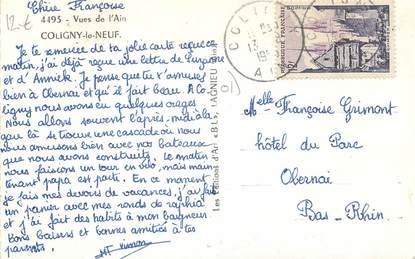 12-€
Chère Françoise
4493 - Vues de l'Ain
COLIGNY-le-NEUF.
Je te remercie de ta jolie carte reçue ce
matin, j'ai déjà reçue une lettre de Suzanne
et d'Annick. Je pense que tu t'amuses
bien à Obernai et qu'il fait beau. A Co-
ligny nous avons eu quelques orages
Nous allons souvent l'après-midi à le
gau là se trouve une cascade où nous
nous amusons bien avec nos bateaux
que nous avons construits. Le matin
nous faisons un tour en vélo, mais main-
tenant papa est parti. En ce moment
je fais mes devoirs de vacances, j'ai fait
un panier avec mes ronds de raphia
et j'ai fait des habits à mon baigneur
Bons baisers et bonnes amitiés à tes
parents.
Les Editions d'Art « B L », LAGNIEU (Ain)
COLIGNY
AIN
POSTES
Melle Françoise Grimont
hôtel du Parc
Obernai
Bas-Rhin